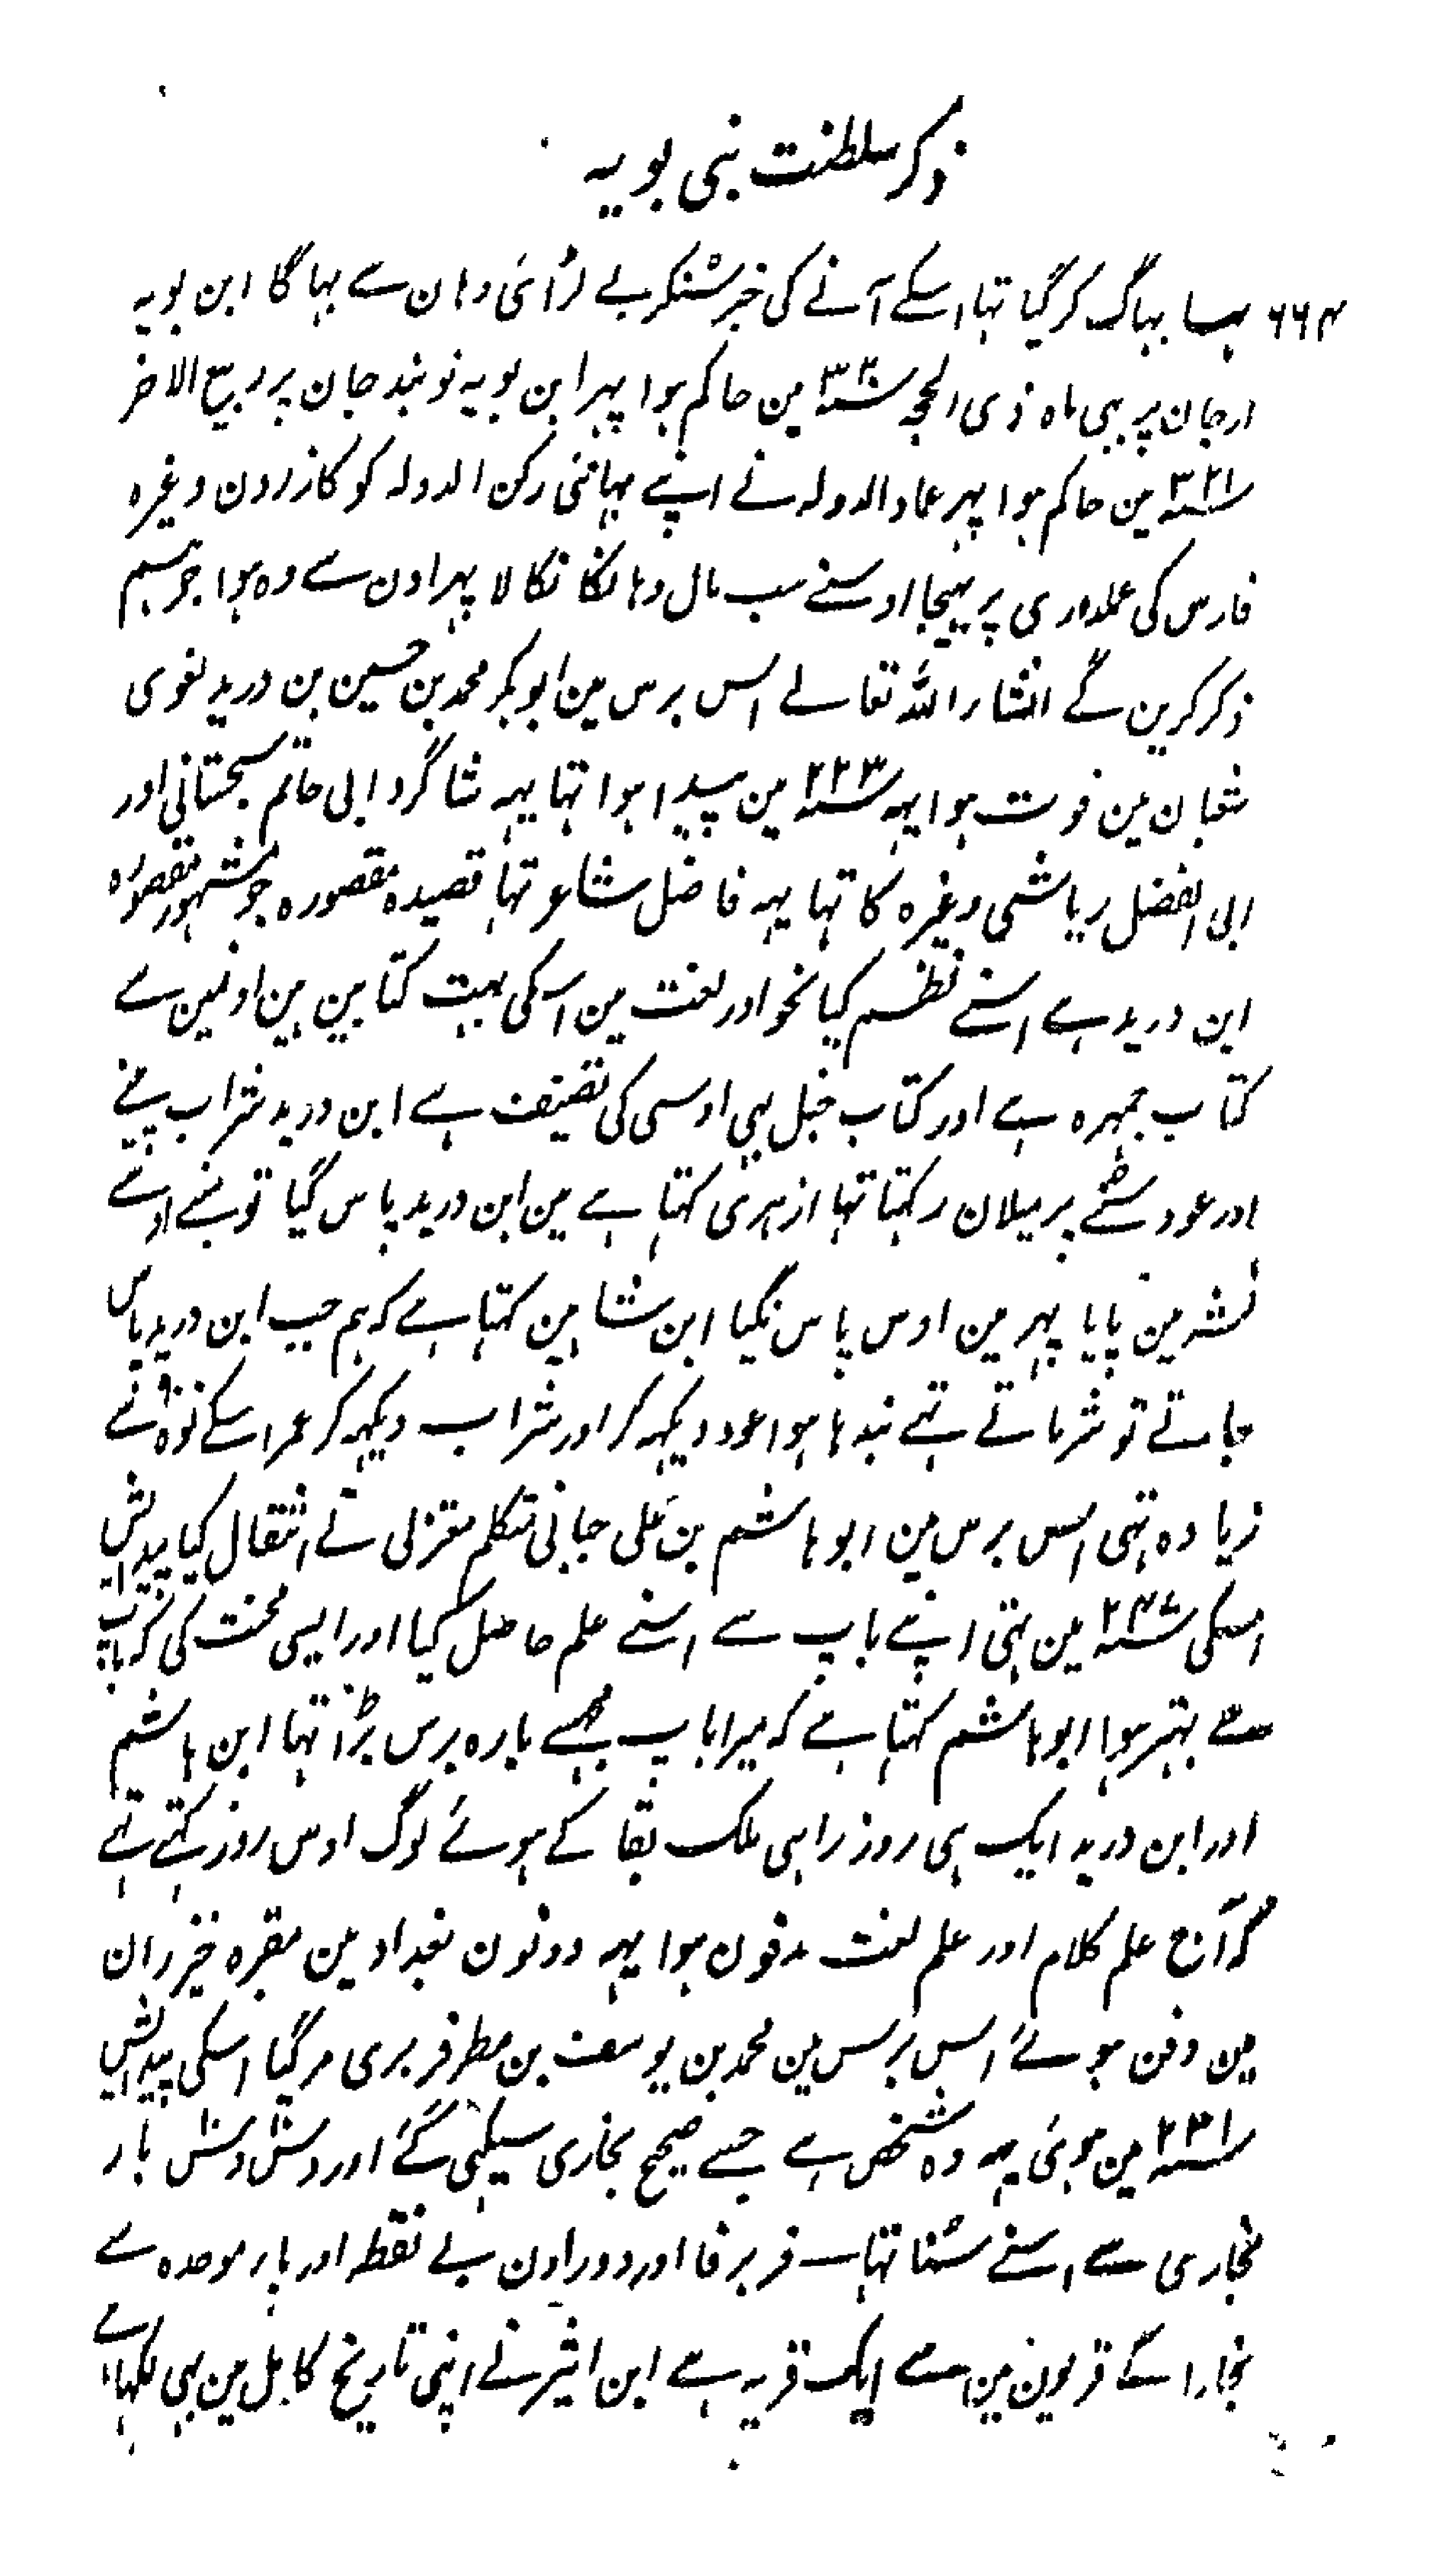 ذکر سلطنت بنی بویہ
۶۶۴ بہا بہاگ کر گیا تہا اسکے آنے کی خبر سُنکر بے لڑائی وہان سے بہاگا ابن بویہ
ارجان پر بہی ماہ ذی الحجہ سنہ ۳۲۰ مین حاکم ہوا پہر ابن بویہ نوبندجان پر ربیع الاخر
سنہ ۳۲۱ مین حاکم ہوا پہر عماد الدولہ نے اپنے بہائی رکن الدولہ کو کازرون وغیرہ
فارس کی عملداری پر بہیجا اوسنے سب مال وہانکا نکالا پہر اون سے وہ ہوا جو ہم
ذکر کرین گے انشار اللہ تعالے اس برس مین ابو بکر محمد بن حسین بن درید لغوی
شعبان مین فوت ہوا یہہ سنہ ۲۲۳ مین پیدا ہوا تہا یہہ شاگرد ابی حاتم سجستانی اور
ابی الفضل ریاشی وغیرہ کا تہا یہہ فاضل شاعر تہا قصیدہ مقصورہ جو مشہور مقصورہ
ابن درید ہے اسنے نظم کیا نحو اور لغت مین اسکی بہت کتابین ہین اونمین سے
کتاب جمہرہ ہے اور کتاب خیل بہی اوسی کی تصنیف ہے ابن درید شراب پینے
اور عود سننے پر میلان رکہتا تہا ازہری کہتا ہے مین ابن درید پاس گیا تو مینے اوسے
نشہ مین پایا پہر مین اوس پاس نگیا ابن شاہین کہتا ہے کہ ہم جب ابن درید پاس
جاتے تو شرماتے تہے بندہا ہوا عود دیکہہ کر اور شراب دیکہہ کر عمر اسکے نوّے ۹۰ سے
زیادہ تہی اس برس مین ابو ہاشم بن علی جبائی متکلم معتزلی نے انتقال کیا پیدایش
اسکی سنہ ۲۴۷ مین تہی اپنے باپ سے اسنے علم حاصل کیا اور ایسی محنت کی کہ باپ
سے بہتر ہوا ابو ہاشم کہتا ہے کہ میرا باپ مجہسے بارہ برس بڑا تہا ابن ہاشم
اور ابن درید ایک ہی روز راہی ملک بقا کے ہوئے لوگ اوس روز کہتے تہے
کہ آج علم کلام اور علم لغت مدفون ہوا یہہ دونون بغداد مین مقبرہ خیزران
مین دفن ہوئے اس برس مین محمد بن یوسف بن مطر فربری مر گیا اسکی پیدایش
سنہ ۲۳۱ مین ہوئی یہہ وہ شخص ہے جسے صحیح بخاری سیکہی گئے اور دسْ دسْ بار
بخاری سے اسنے سُنا تہا فربر فا اور دو راون بے نقطہ اور بار موحدہ سے
بخارا کے قریون مین سے ایک قریہ ہے ابن اثیر نے اپنی تاریخ کامل مین یہی لکہا ہے